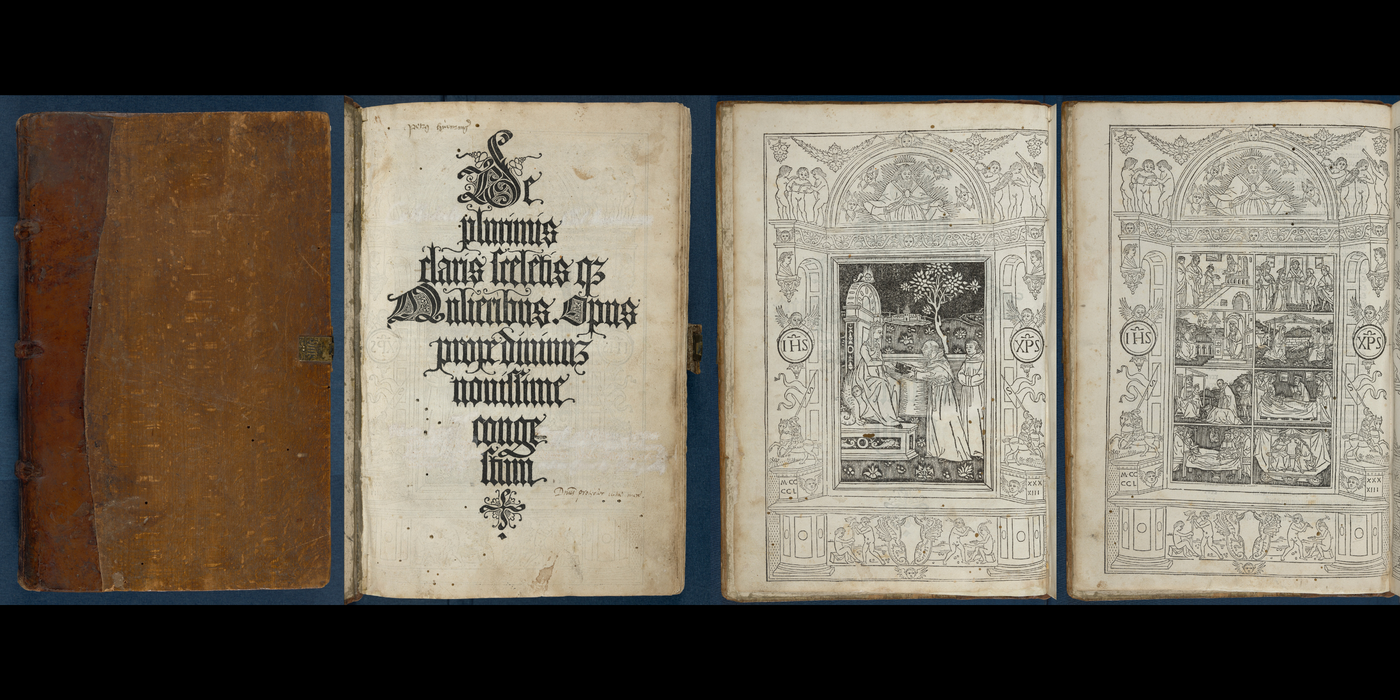 De
plurimis
claris sceletis qꝫ
Mulieribus. Opus
prope diuinuꝫ
nouissime
conge
stum
IHS
XPS
MCC
CCL
XXX
XIII
IHS
XPS
MCC
CCL
XXX
XIII